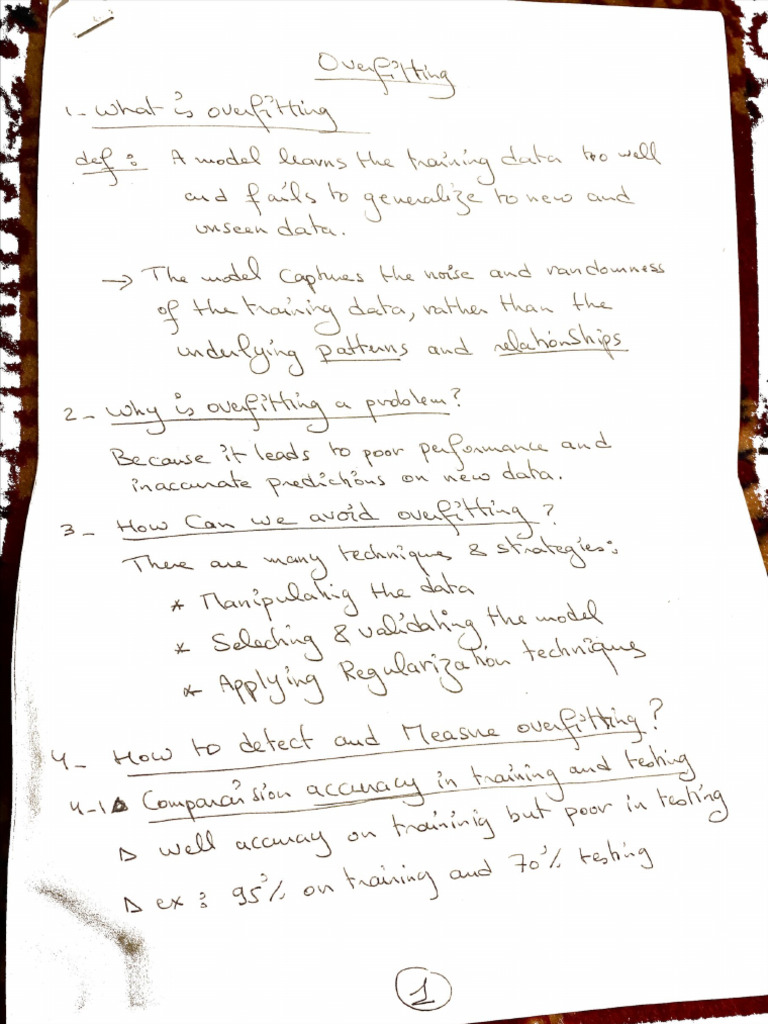 Overfitting
1- What is overfitting
def : A model learns the training data too well
and fails to generalize to new and
unseen data.
→ The model captures the noise and randomness
of the training data, rather than the
underlying patterns and relationships
2- Why is overfitting a problem?
Because it leads to poor performance and
inaccurate predictions on new data.
3- How Can we avoid overfitting?
There are many techniques & strategies:
* Manipulating the data
* Selecting & validating the model
* Applying Regularization techniques
4- How to detect and Measure overfitting?
4-1 Comparaision accuracy in training and testing
▷ well accuracy on training but poor in testing
▷ ex : 95% on training and 70% testing
1